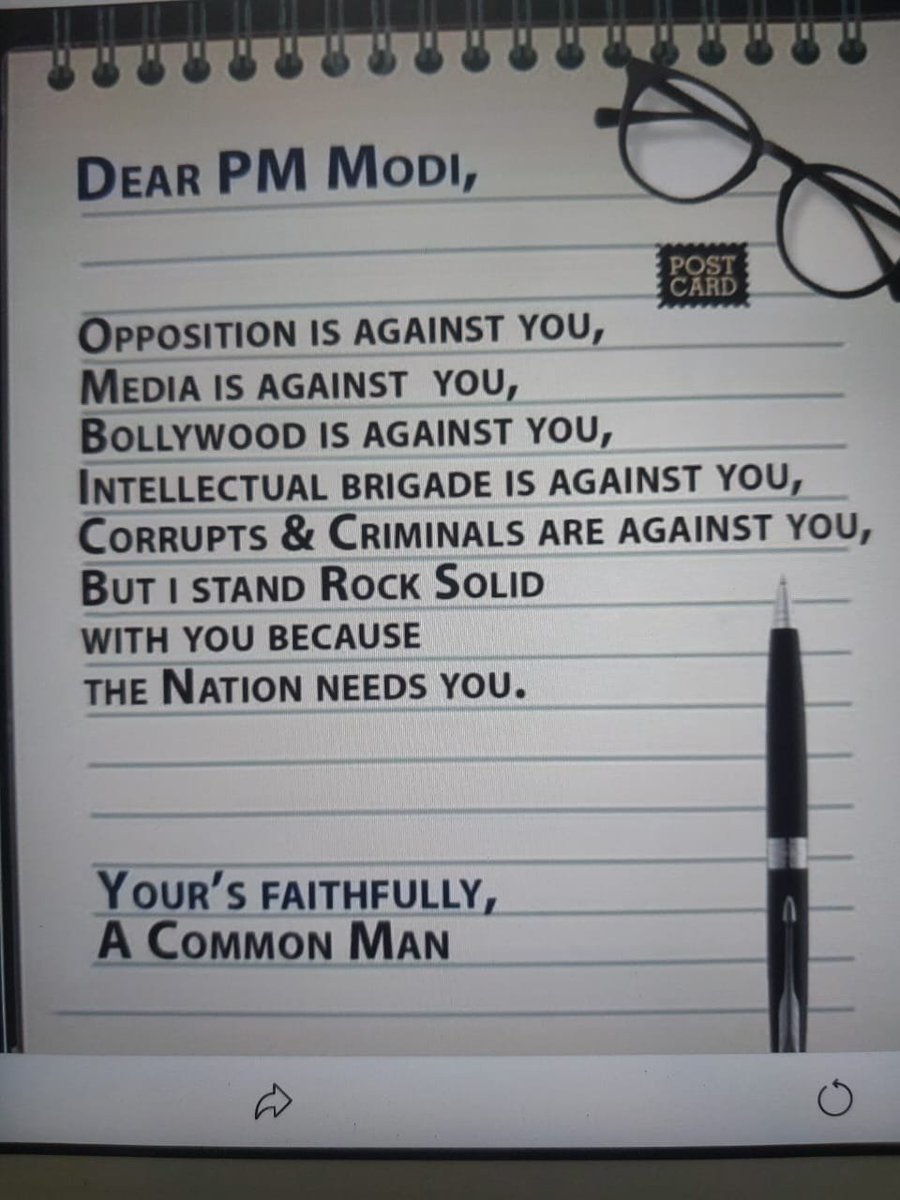 DEAR PM MODI,
POST
CARD
OPPOSITION IS AGAINST YOU,
MEDIA IS AGAINST YOU,
BOLLYWOOD IS AGAINST YOU,
INTELLECTUAL BRIGADE IS AGAINST YOU,
CORRUPTS & CRIMINALS ARE AGAINST YOU,
BUT I STAND ROCK SOLID
WITH YOU BECAUSE
THE NATION NEEDS YOU.
YOUR'S FAITHFULLY,
A COMMON MAN